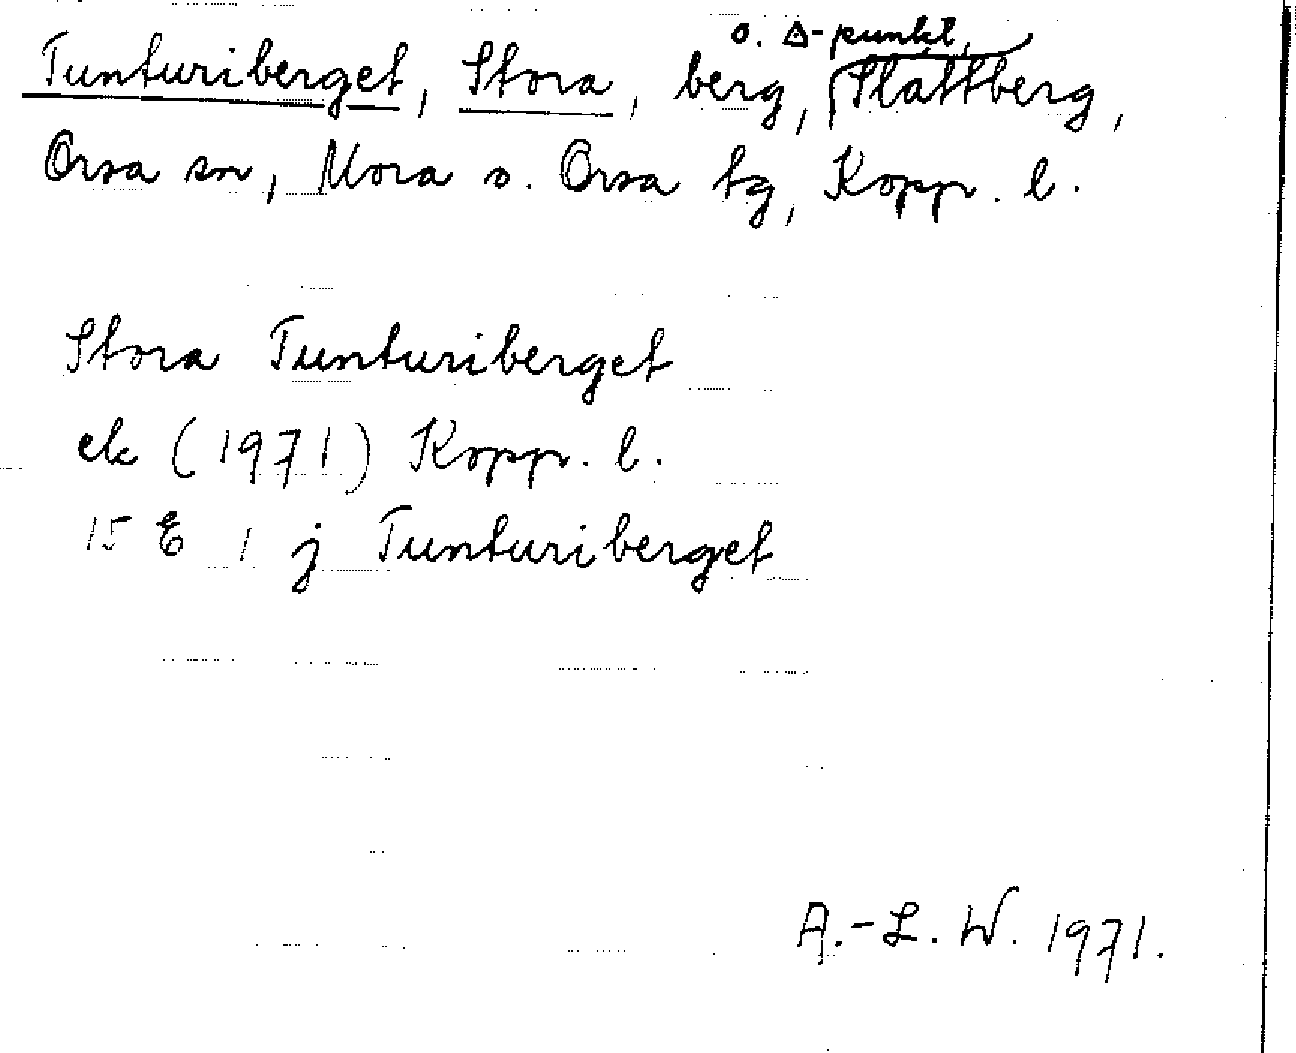 Tunturiberget, Stora, berg o. Δ-punkt, Slättberg,
Orsa sn, Mora o. Orsa tg, Kopp. l.
Stora Tunturiberget
ek (1971) Kopp. l.
15 E 1 j Tunturiberget
A.-L. W. 1971.